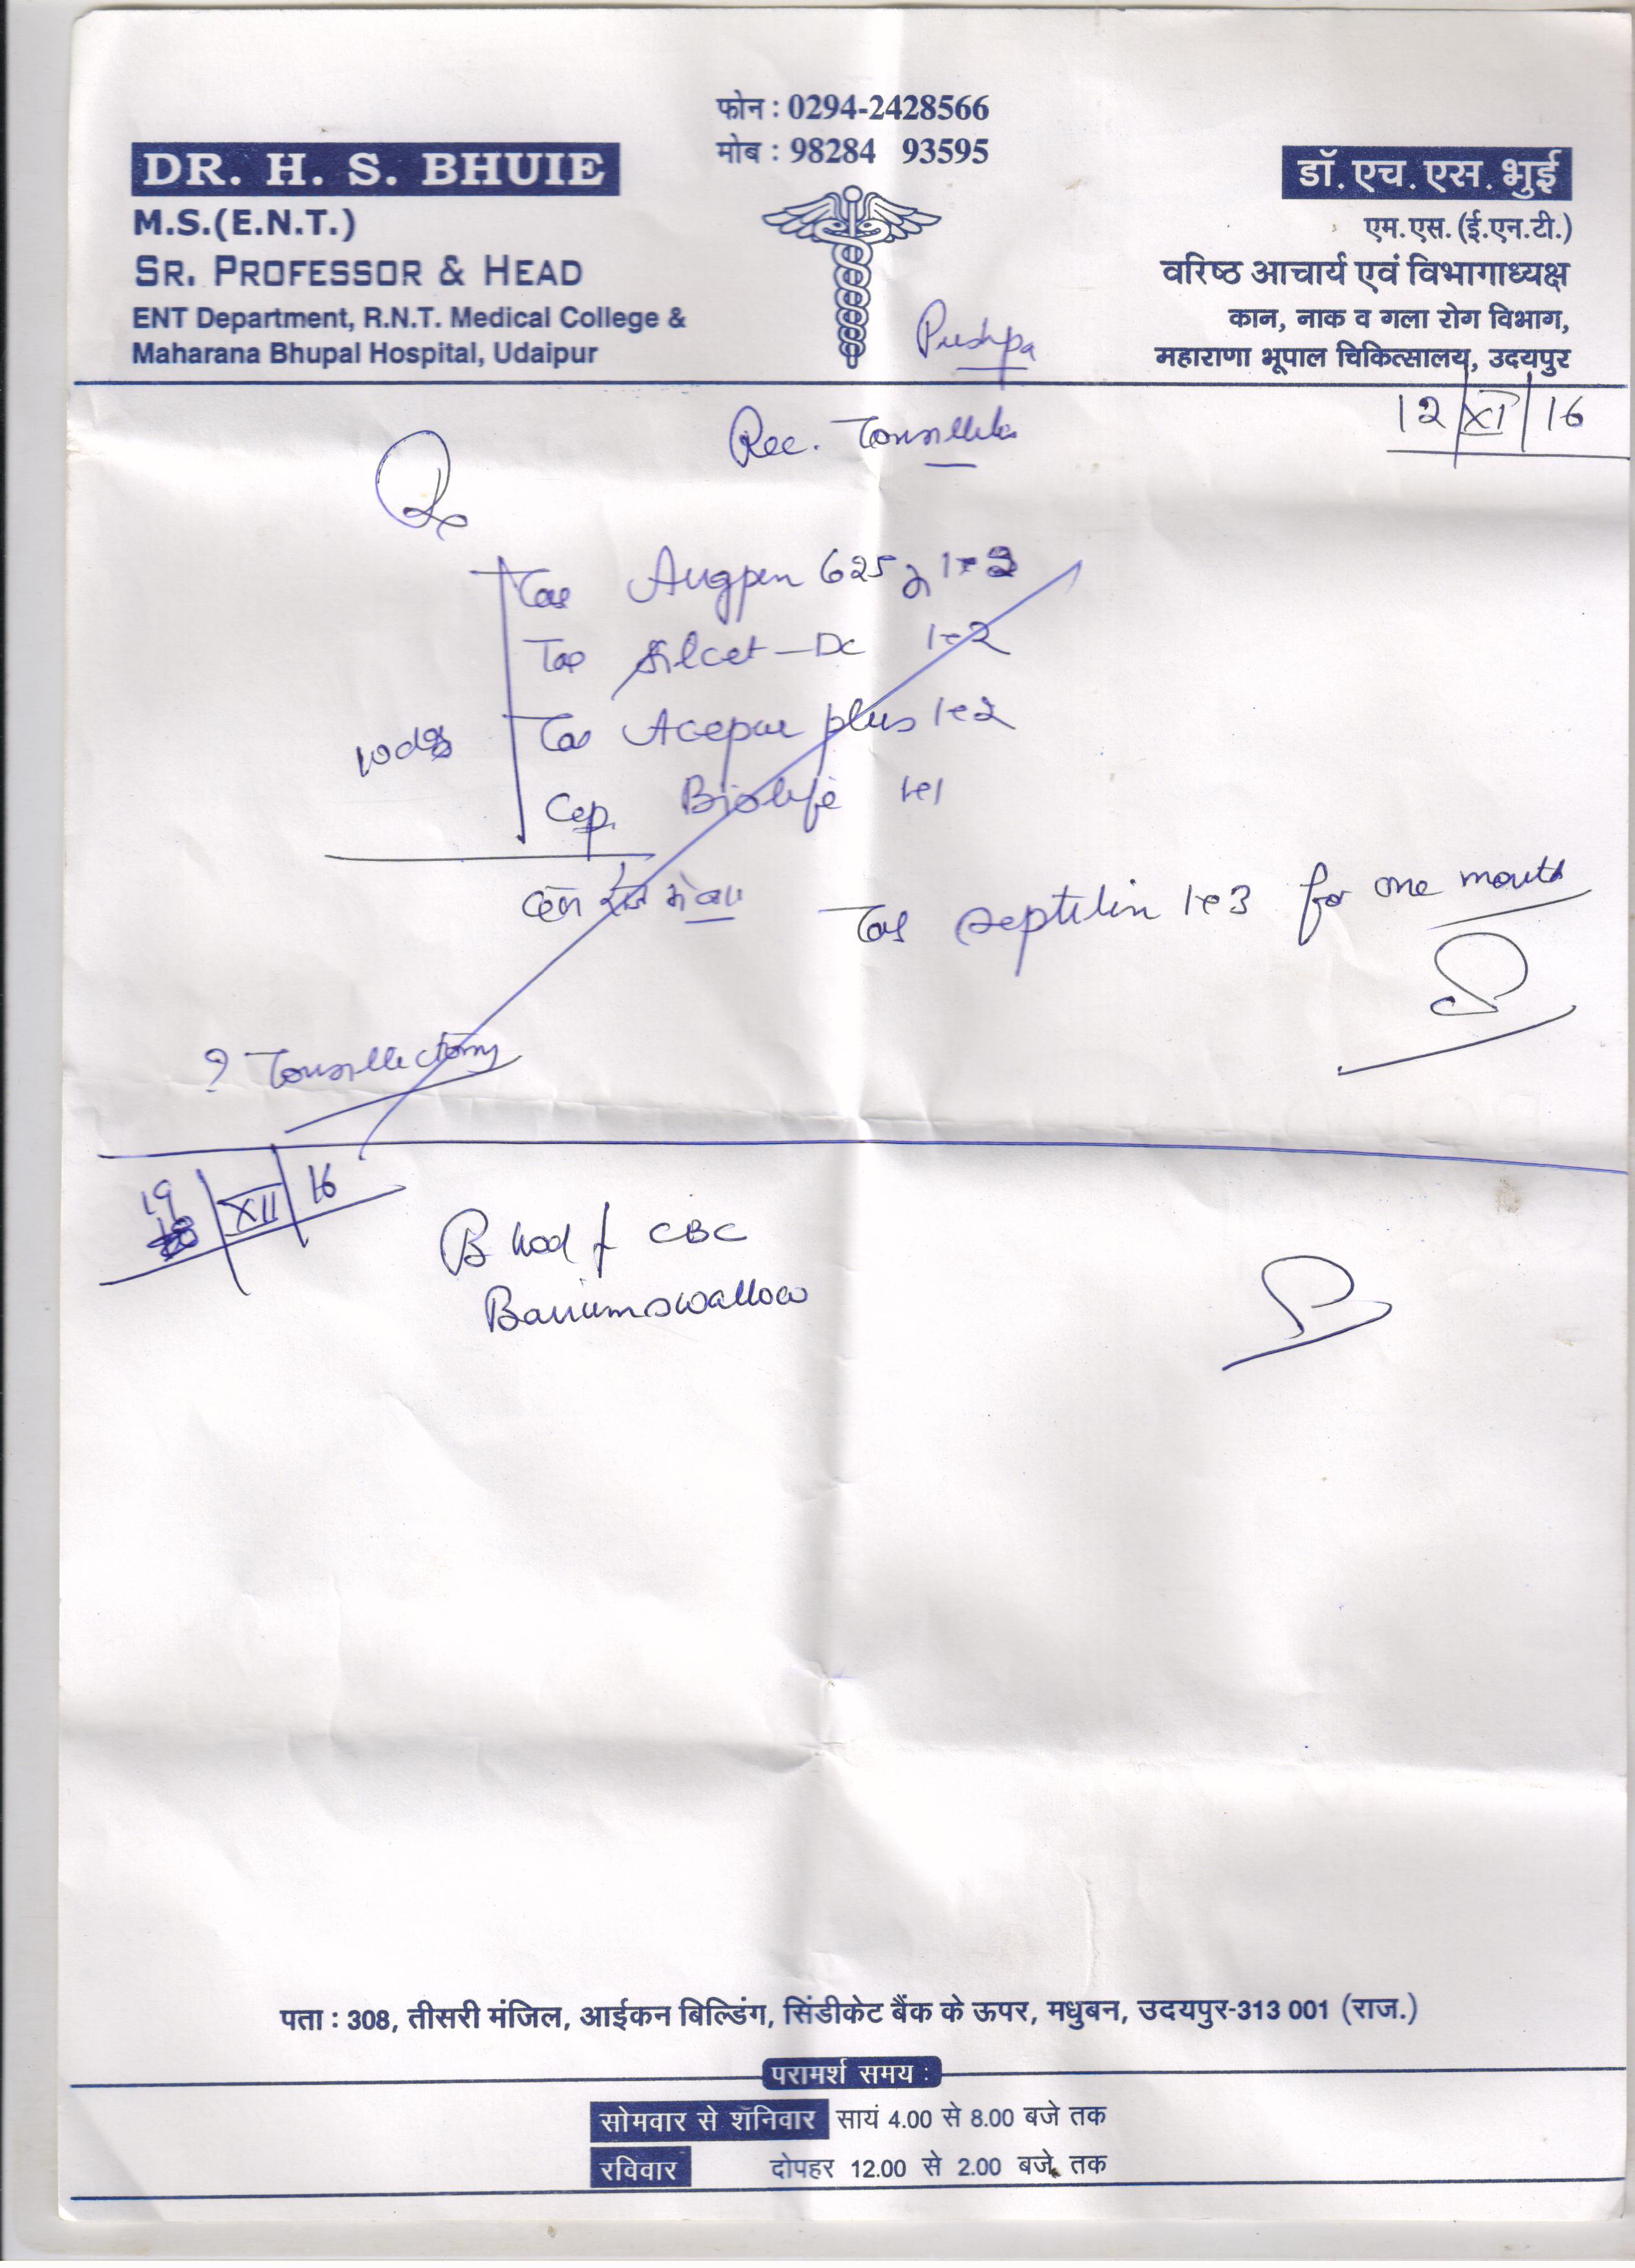 फोन : 0294-2428566
मोब : 98284 93595
DR. H. S. BHUIE
M.S.(E.N.T.)
SR. PROFESSOR & HEAD
ENT Department, R.N.T. Medical College &
Maharana Bhupal Hospital, Udaipur
डॉ. एच. एस. भुई
एम.एस. (ई.एन.टी.)
वरिष्ठ आचार्य एवं विभागाध्यक्ष
कान, नाक व गला रोग विभाग,
महाराणा भूपाल चिकित्सालय, उदयपुर
Pushpa
12/XI/16
Rec. Tonsillitis
Rx
Tab Augpen 625 1-2
Tab Silcet-DC 1-2
Tab Acepar plus 1-2
10 days
Cap. Biolife 1-1
Tab Septilin 1-3 for one month
? Tonsillectomy
19/XII/16
Blood f CBC
Barium swallow
पता : 308, तीसरी मंजिल, आईकन बिल्डिंग, सिंडीकेट बैंक के ऊपर, मधुबन, उदयपुर-313 001 (राज.)
परामर्श समय :
सोमवार से शनिवार सायं 4.00 से 8.00 बजे तक
रविवार दोपहर 12.00 से 2.00 बजे तक